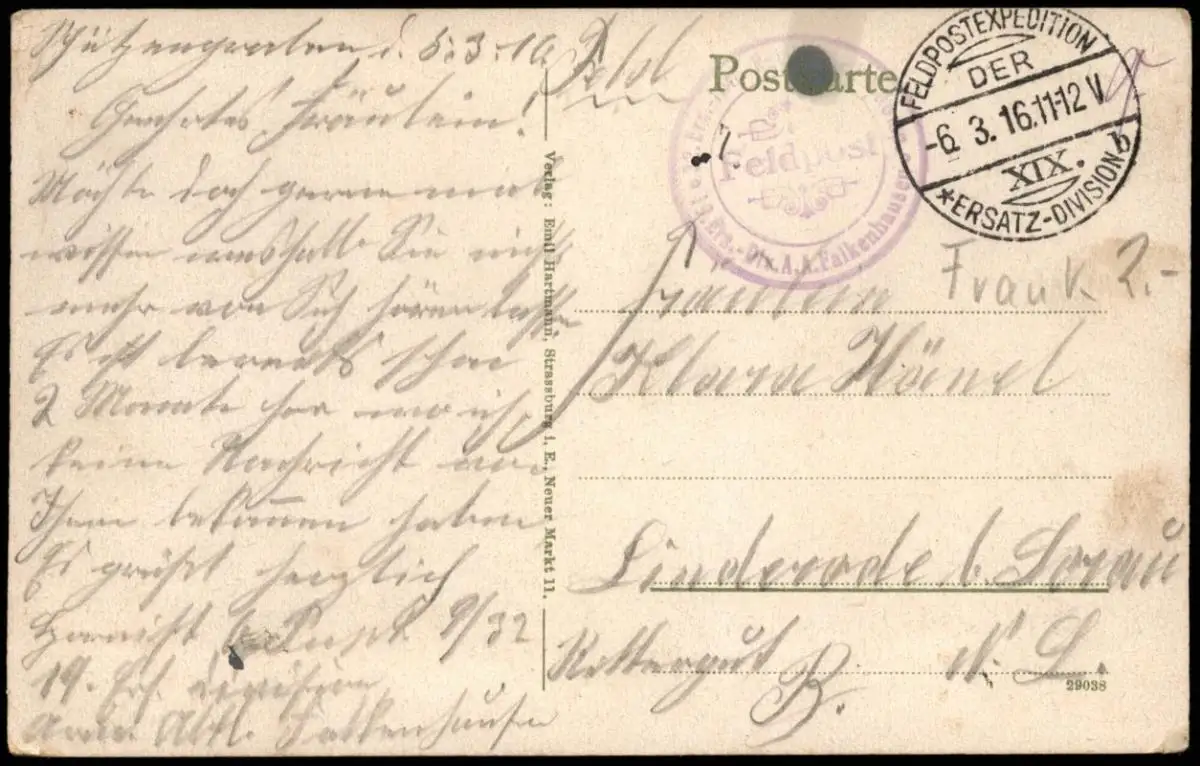 Schützengraben d. 5.3.16
Geehrtes Fräulein!
Möchte doch gerne mal
wissen weshalb Sie nichts
mehr von Sich hören lassen
Es ist bereits schon
2 Monate her wo ich
keine Nachricht von
Ihnen bekommen haben
Es grüßt herzlich
9/32
19. Ers. Division
Arm. Abtl. Falkenhausen
Verlag: Emil Hartmann, Strassburg i. E., Neuer Markt 11.
Feld
Postkarte
Feldpost
19. Ers.-Div. A.A. Falkenhausen
FELDPOSTEXPEDITION
DER
-6. 3. 16. 11-12 V
XIX.
*ERSATZ-DIVISION b
Frank 2.-
Fräulein
Klara Hänel
Linderode b. Sorau
Rittergut N. L.
29038